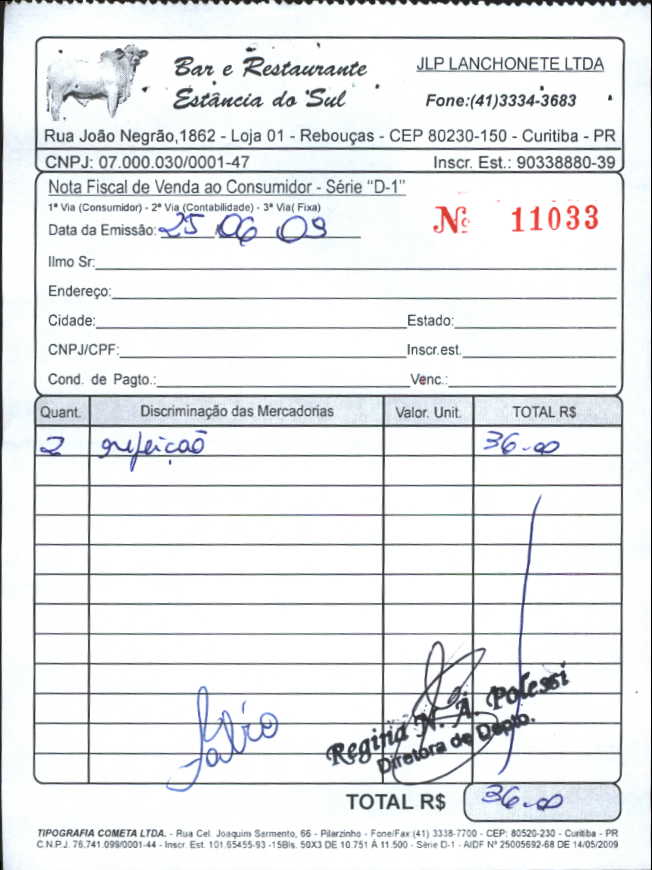 Bar e Restaurante
Estância do Sul
JLP LANCHONETE LTDA
Fone:(41)3334-3683
Rua João Negrão,1862 - Loja 01 - Rebouças - CEP 80230-150 - Curitiba - PR
CNPJ: 07.000.030/0001-47 Inscr. Est.: 90338880-39
Nota Fiscal de Venda ao Consumidor - Série "D-1"
1ª Via (Consumidor) - 2ª Via (Contabilidade) - 3ª Via( Fixa)
Nº 11033
Data da Emissão: 25 06 09
Ilmo Sr:
Endereço:
Cidade: Estado:
CNPJ/CPF: Inscr.est.
Cond. de Pagto.: Venc.:
Quant. Discriminação das Mercadorias Valor. Unit. TOTAL R$
2 refeição 36-00
Fabio
Regina N. A. Polessi
Diretora de Depto.
TOTAL R$ 36-00
TIPOGRAFIA COMETA LTDA. - Rua Cel. Joaquim Sarmento, 66 - Pilarzinho - Fone/Fax (41) 3338-7700 - CEP: 80520-230 - Curitiba - PR
C.N.P.J. 76.741.099/0001-44 - Inscr. Est. 101.65455-93 -15Bls. 50X3 DE 10.751 À 11.500 - Série D-1 - AIDF Nº 25005692-68 DE 14/05/2009